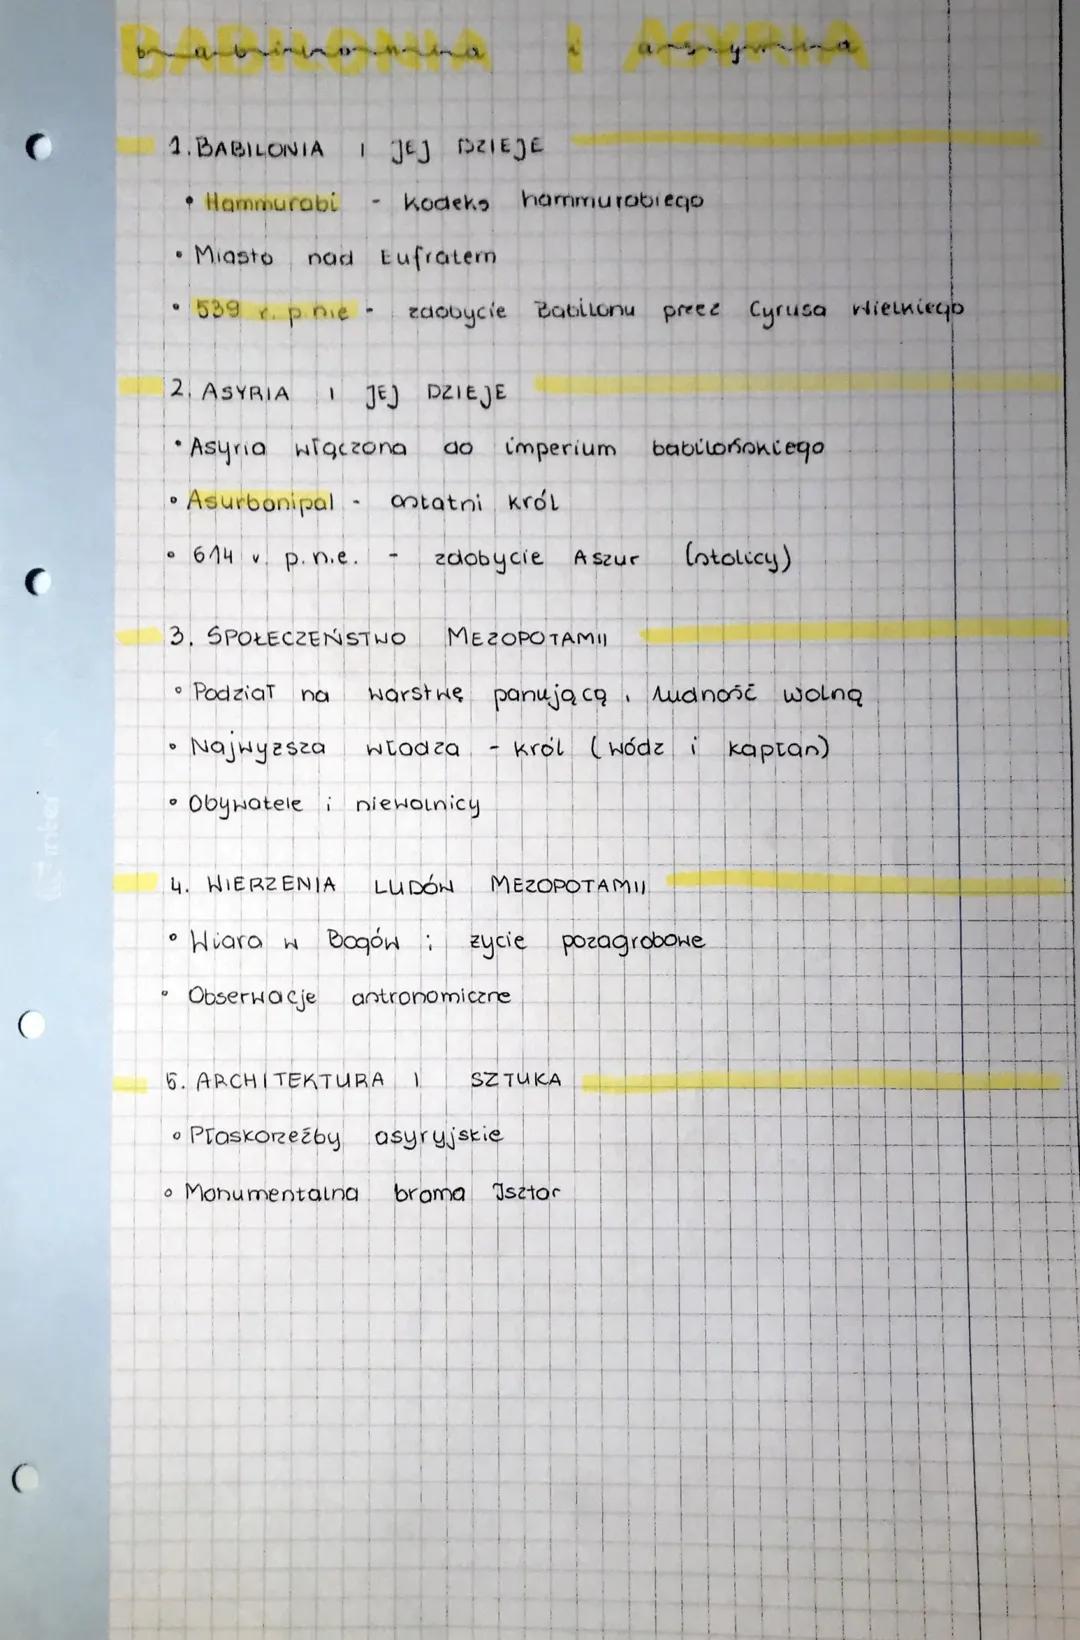 BABILONIA I ASYRIA
babilonia i asyria
1. BABILONIA I JEJ DZIEJE
• Hammurabi - kodeks hammurabiego
• Miasto nad Eufratem
• 539 r. p. nie - zdobycie Babilonu przez Cyrusa Wielkiego
2. ASYRIA I JEJ DZIEJE
• Asyria włączona do imperium babilońskiego
• Asurbanipal - ostatni król
• 614 r. p.n.e. - zdobycie Aszur (stolicy)
3. SPOŁECZEŃSTWO MEZOPOTAMII
• Podział na warstwę panującą, ludność wolną
• Najwyzsza władza - król (wódz i kapłan)
• Obywatele i niewolnicy
4. WIERZENIA LUDÓW MEZOPOTAMII
• Wiara w Bogów ; zycie pozagrobowe
• Obserwacje astronomiczne
5. ARCHITEKTURA I SZTUKA
• Płaskorzeźby asyryjskie
• Monumentalna brama Isztar